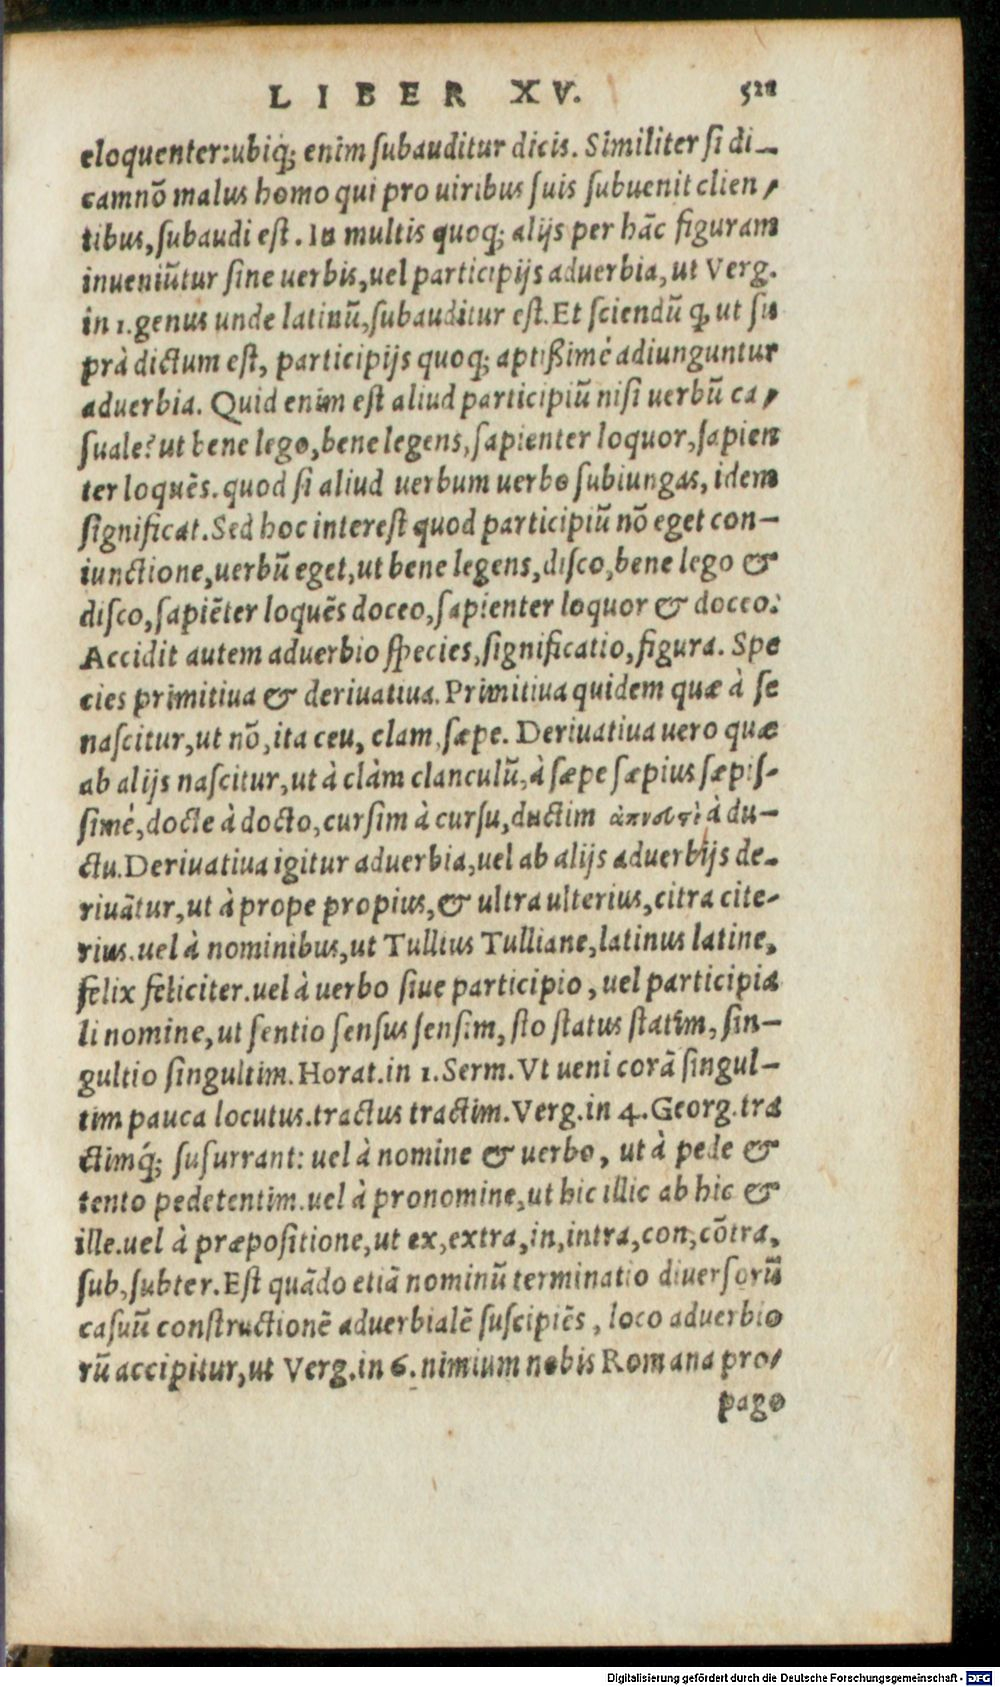 LIBER XV. 521
eloquenter:ubiq; enim ſubauditur dicis. Similiter ſi di-
camnõ malus homo qui pro uiribus ſuis ſubuenit clien,
tibus, ſubaudi eſt. In multis quoq; alijs per hãc figuram
inueniũtur ſine uerbis, uel participijs aduerbia, ut Verg.
in 1. genus unde latinũ, ſubauditur eſt. Et ſciendũ q, ut ſu
prà dictum eſt, participijs quoq; aptißimé adiunguntur
aduerbia. Quid enim eſt aliud participiũ niſi uerbũ ca,
ſuale? ut bene lego, bene legens, ſapienter loquor, ſapien
ter loquẽs. quod ſi aliud uerbum uerbo ſubiungas, idem
ſignificat. Sed hoc intereſt quod participiũ nõ eget con-
iunctione, uerbũ eget, ut bene legens, diſco, bene lego &
diſco, ſapiẽter loquẽs doceo, ſapienter loquor & doceo.
Accidit autem aduerbio ſpecies, ſignificatio, figura. Spe
cies primitiua & deriuatiua. Primitiua quidem quæ à ſe
naſcitur, ut nõ, ita ceu, clam, ſæpe. Deriuatiua uero quæ
ab alijs naſcitur, ut à clàm clanculũ, à ſæpe ſæpius ſæpiſ-
ſimé, docte à docto, curſim à curſu, ductim ἀπνευστὶ à du-
ctu. Deriuatiua igitur aduerbia, uel ab alijs aduerbijs de-
riuãtur, ut à prope propius, & ultra ulterius, citra cite-
rius. uel à nominibus, ut Tullius Tulliane, latinus latine,
felix feliciter. uel à uerbo ſiue participio, uel participia
li nomine, ut ſentio ſenſus ſenſim, ſto ſtatus ſtatim, ſin-
gultio ſingultim. Horat. in 1. Serm. Vt ueni corã ſingul-
tim pauca locutus. tractus tractim. Verg. in 4. Georg. tra
ctimq́; ſuſurrant: uel à nomine & uerbo, ut à pede &
tento pedetentim. uel à pronomine, ut hic illic ab hic &
ille. uel à præpoſitione, ut ex, extra, in, intra, con, cõtra,
ſub, ſubter. Eſt quãdo etiã nominũ terminatio diuerſorũ
caſuũ conſtructionẽ aduerbialẽ ſuſcipiẽs, loco aduerbio
rũ accipitur, ut Verg. in 6. nimium nobis Romana pro,
pago
Digitalisierung gefördert durch die Deutsche Forschungsgemeinschaft - DFG